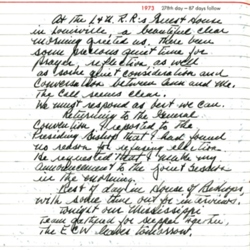 1973 278th day — 87 days follow
At the L&N. R.R's Guest House
in Louisville, a beautiful clear
morning greeted us. There been
some precious quiet time for
prayer, reflection, as well
as some quiet consideration and
conversation between Ann and Me.
The call seems clear.
We must respond as best we can.
Returning to the General
Convention I reported to the
Presiding Bishop that I had found
no reason for refusing election.
He requested that I make my
announcement to the Joint Session
in the morning.
Rest of day in House of Bishops,
with some time out for interviews.
Tonight our Mississippi
Team for supper together.
The ECW tomorrow.